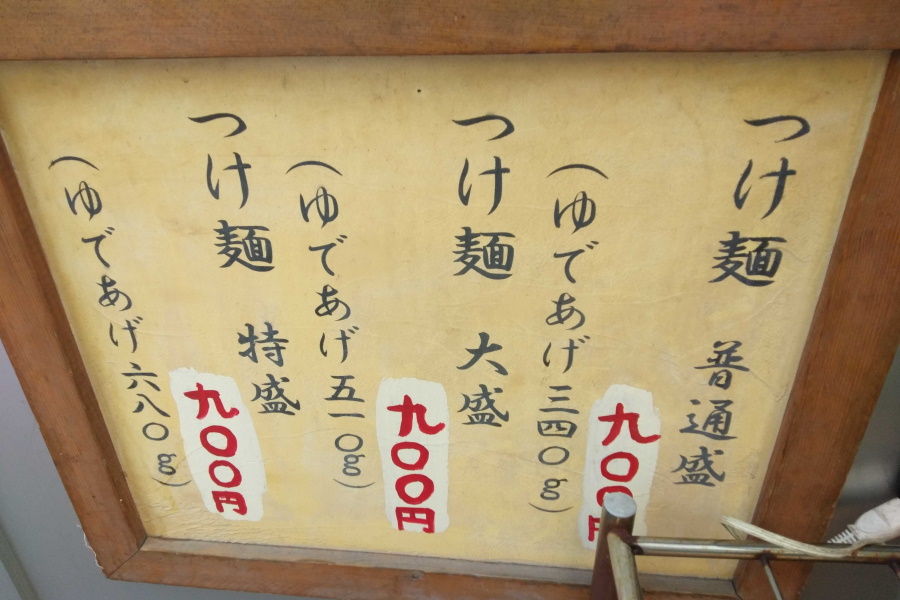 つけ麺 普通盛
九〇〇円
(ゆであげ三四〇g)
つけ麺 大盛
九〇〇円
(ゆであげ五一〇g)
つけ麺 特盛
九〇〇円
(ゆであげ六八〇g)